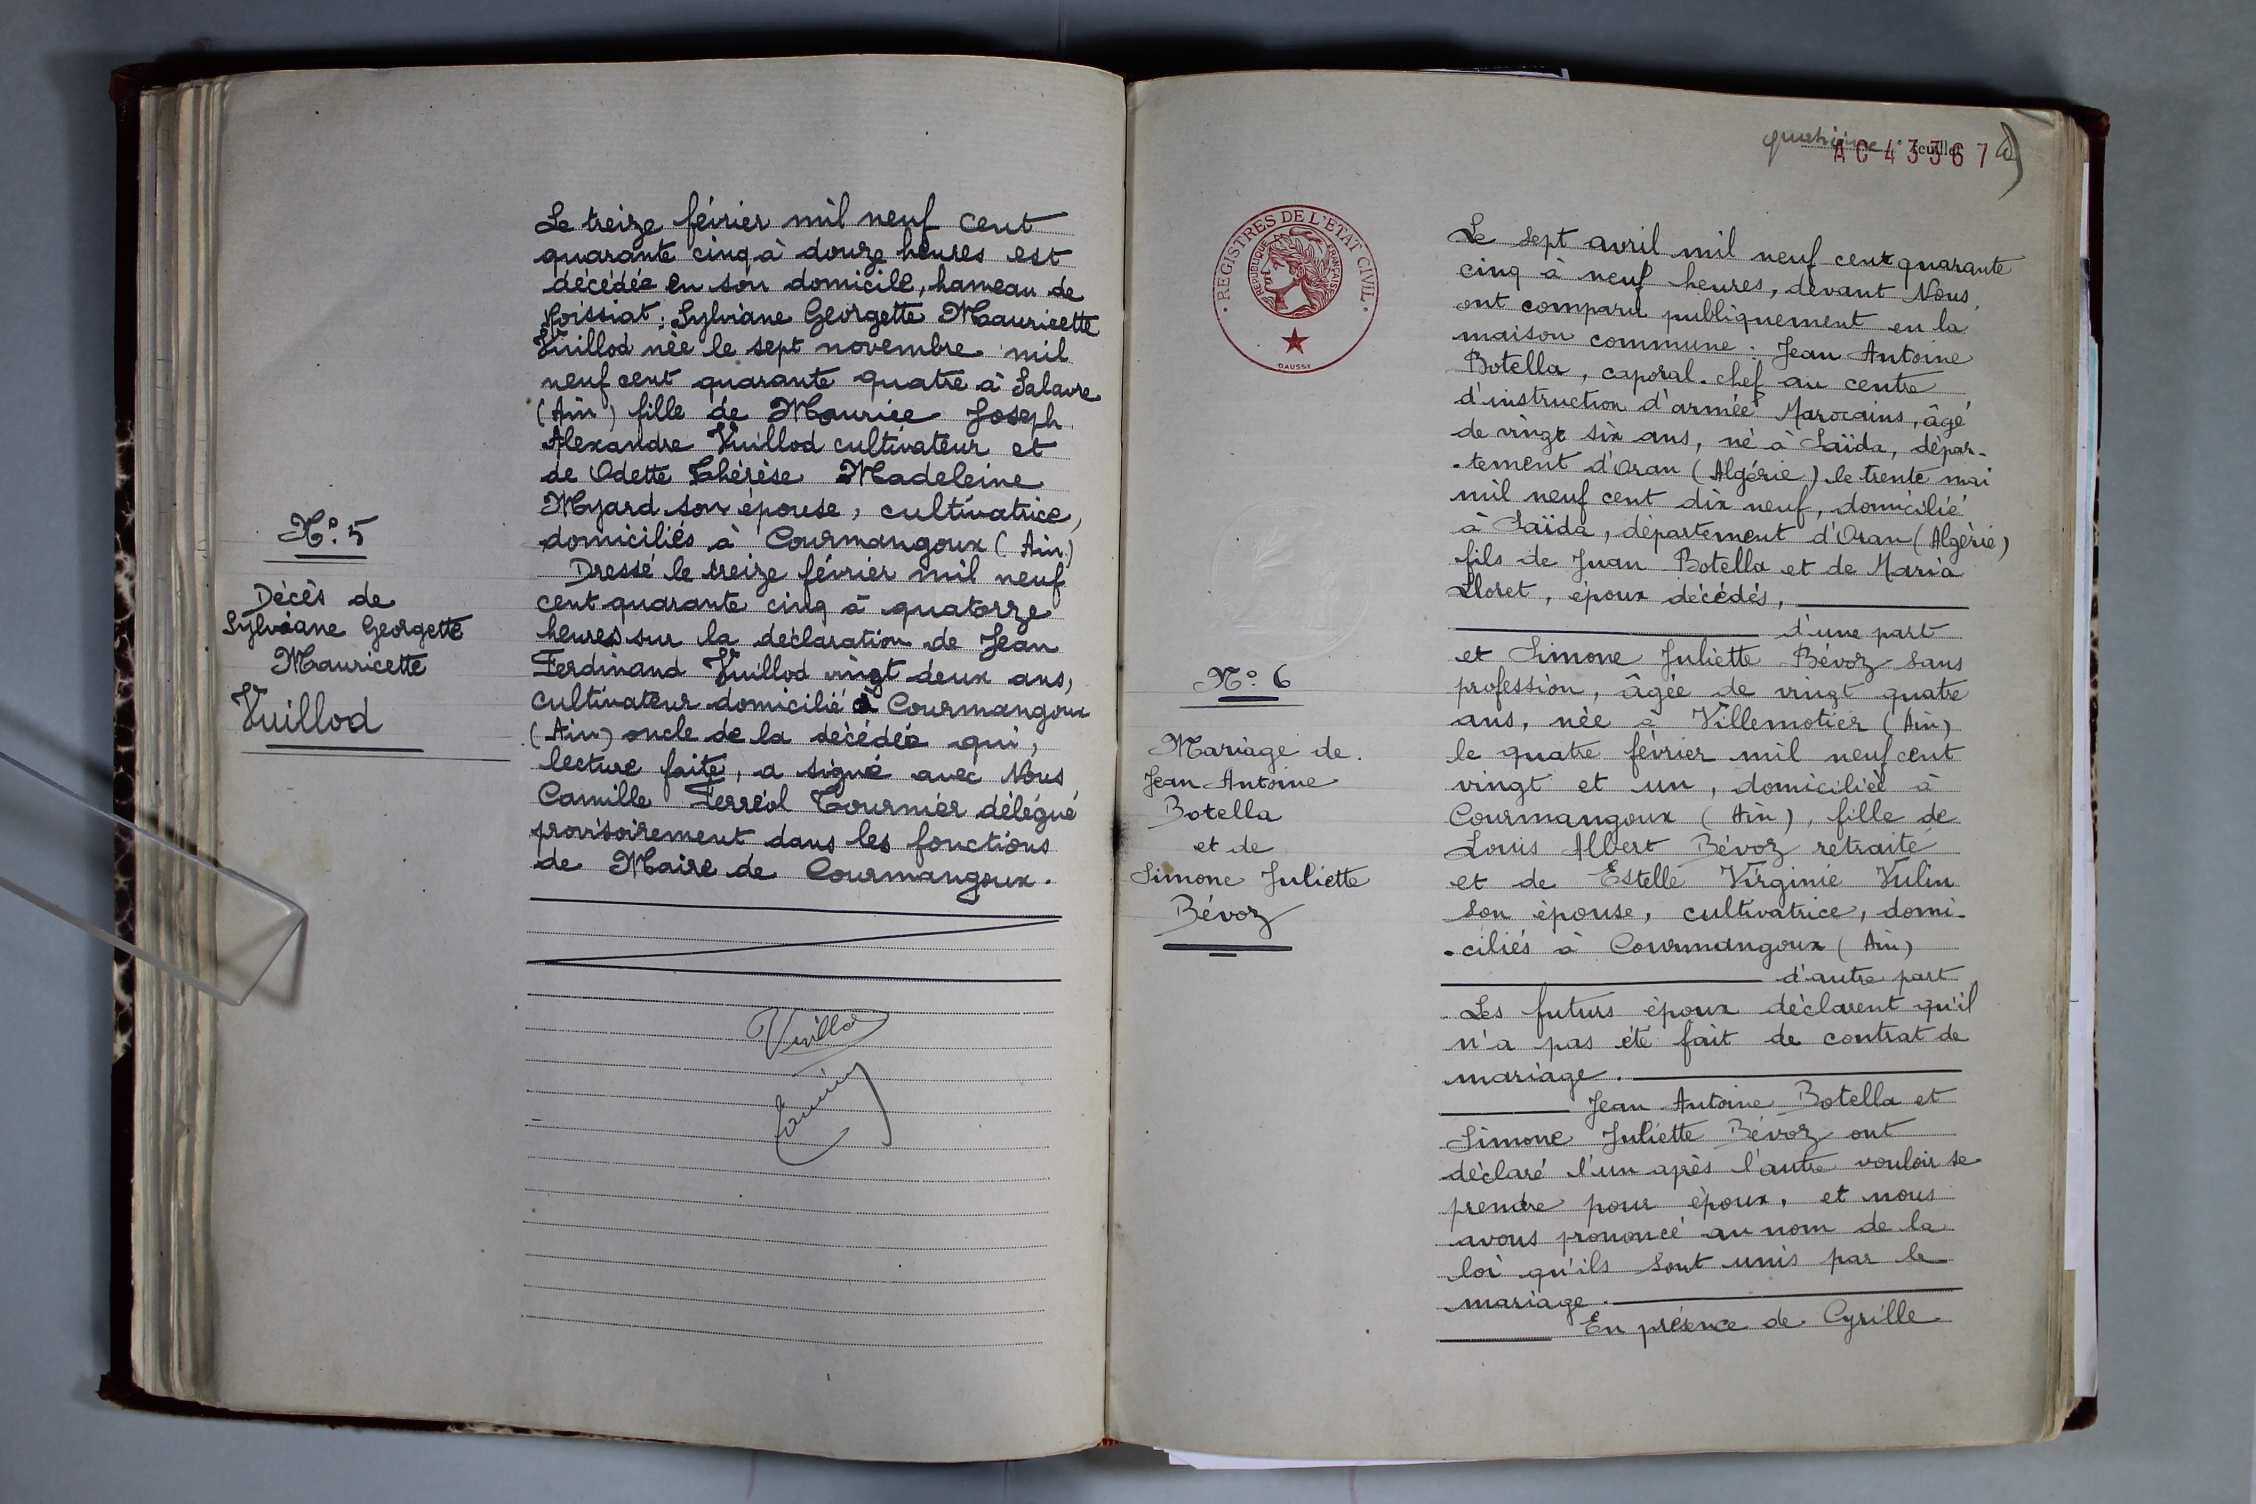 N°. 5
Décès de
Sylviane Georgette
Mauricette
Vuillod
Le treize février mil neuf cent
quarante cinq à douze heures est
décédée en son domicile, hameau de
Roissiat, Sylviane Georgette Mauricette
Vuillod née le sept novembre mil
neuf cent quarante quatre à Salavre
(Ain) fille de Maurice Joseph
Alexandre Vuillod cultivateur et
de Odette Thérèse Madeleine
Myard son épouse, cultivatrice,
domiciliés à Courmangoux (Ain)
Dressé le treize février mil neuf
cent quarante cinq à quatorze
heures sur la déclaration de Jean
Ferdinand Vuillod vingt deux ans,
cultivateur domicilié à Courmangoux
(Ain) oncle de la décédée qui,
lecture faite, a signé avec Nous
Camille Ferréol Tournier délégué
provisoirement dans les fonctions
de Maire de Courmangoux.
Vuillod
AC 43367
feuillet
REGISTRES DE L'ETAT CIVIL
REPUBLIQUE FRANÇAISE
DAUSSY
N°. 6
Mariage de
Jean Antoine
Botella
et de
Simone Juliette
Bévoz
Le sept avril mil neuf cent quarante
cinq à neuf heures, devant Nous,
ont comparu publiquement en la
maison commune. Jean Antoine
Botella, caporal-chef au centre
d'instruction d'armée Marocains, âgé
de vingt six ans, né à Saïda, dépar-
-tement d'Oran (Algérie) le trente mai
mil neuf cent dix neuf, domicilié
à Saïda, département d'Oran (Algérie)
fils de Juan Botella et de Maria
Lloret, époux décédés,
d'une part
et Simone Juliette Bévoz sans
profession, âgée de vingt quatre
ans, née à Villemotier (Ain)
le quatre février mil neuf cent
vingt et un, domiciliée à
Courmangoux (Ain), fille de
Louis Albert Bévoz retraité
et de Estelle Virginie Vulin
son épouse, cultivatrice, domi-
-ciliés à Courmangoux (Ain)
d'autre part
Les futurs époux déclarent qu'il
n'a pas été fait de contrat de
mariage.
Jean Antoine Botella et
Simone Juliette Bévoz ont
déclaré l'un après l'autre vouloir se
prendre pour époux, et nous
avons prononcé au nom de la
loi qu'ils sont unis par le
mariage.
En présence de Cyrille